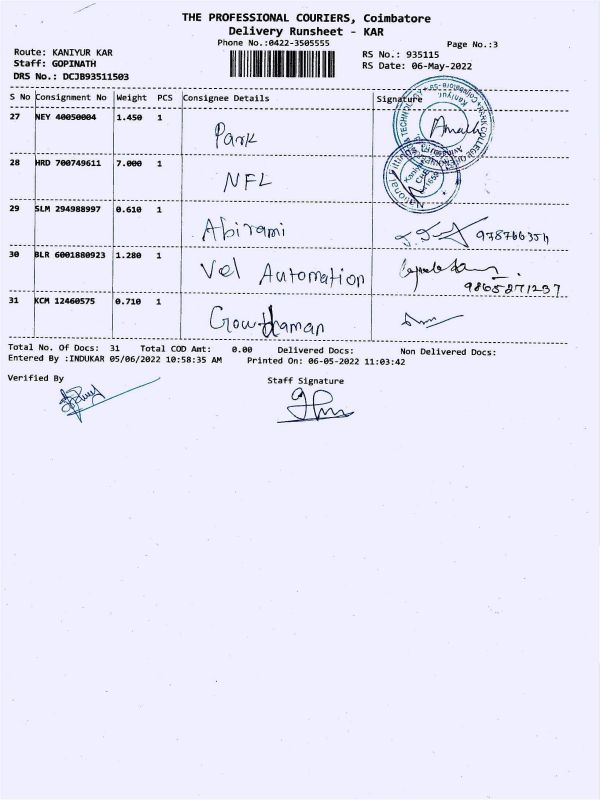 THE PROFESSIONAL COURIERS, Coimbatore
Delivery Runsheet - KAR
Phone No.:0422-3505555
Page No.:3
Route: KANIYUR KAR
Staff: GOPINATH
DRS No.: DCJB93511503
RS No.: 935115
RS Date: 06-May-2022
S No Consignment No Weight PCS Consignee Details Signature
27 NEY 40050004 1.450 1 Park
28 HRD 700749611 7.000 1 NFL
29 SLM 294988997 0.610 1 Abirami
30 BLR 6001880923 1.280 1 Vel Automation 9865271297
31 KCM 12460575 0.710 1 Gowthaman
Total No. Of Docs: 31 Total COD Amt: 0.00 Delivered Docs: Non Delivered Docs:
Entered By :INDUKAR 05/06/2022 10:58:35 AM Printed On: 06-05-2022 11:03:42
Verified By
Staff Signature